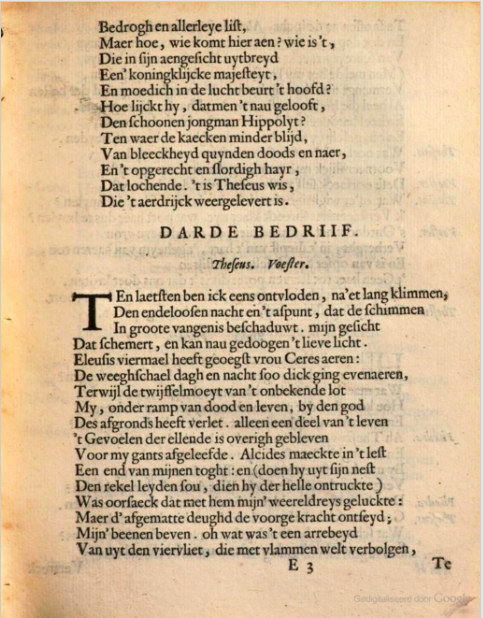 Bedrogh en allerleye list,
Maer hoe, wie komt hier aen? wie is't,
Die in sijn aengesicht uytbreyd
Een' koningklijcke majesteyt,
En moedich in de lucht beurt 't hoofd?
Hoe lijckt hy, datmen 't nau gelooft,
Den schoonen jongman Hippolyt?
Ten waer de kaecken minder blijd,
Van bleeckheyd quynden doods en naer,
En 't opgerecht en slordigh hayr,
Dat lochende. 't is Theseus wis,
Die 't aerdrijck weergelevert is.
DARDE BEDRIIF.
Theseus. Voester.
TEn laetsten ben ick eens ontvloden, na'et lang klimmen,
Den endeloosen nacht en 't aspunt, dat de schimmen
In groote vangenis beschaduwt. mijn gesicht
Dat schemert, en kan nau gedoogen 't lieve licht.
Eleusis viermael heeft geoegst vrou Ceres aeren:
De weeghschael dagh en nacht soo dick ging evenaeren,
Terwijl de twijffelmoeyt van 't onbekende lot
My, onder ramp van dood en leven, by den god
Des afgronds heeft verlet. alleen een deel van 't leven
't Gevoelen der ellende is overigh gebleven
Voor my gants afgeleefde. Alcides maeckte in 't lest
Een end van mijnen toght: en (doen hy uyt sijn nest
Den rekel leyden sou, dien hy der helle ontruckte)
Was oorsaeck dat met hem mijn' weereldreys geluckte:
Maer d'afgematte deughd de voorge kracht ontseyd;
Mijn' beenen beven. oh wat was 't een arrebeyd
Van uyt den viervliet, die met vlammen welt verbolgen,
E 3 Te
Gedigitaliseerd door Google